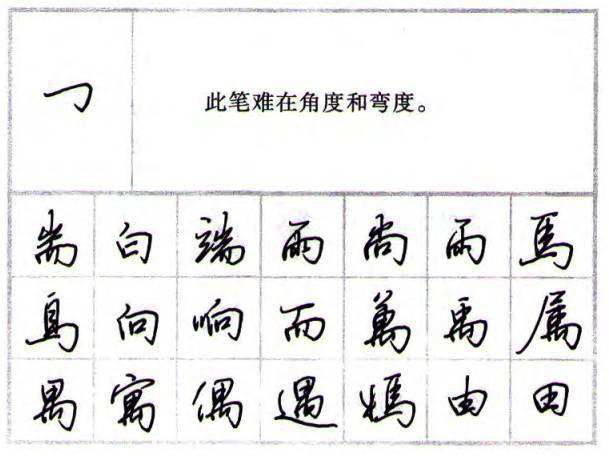 ㇆
此笔难在角度和弯度。
耑 白 端 兩 尚 雨 馬
向 响 而 萬 禹 属
禺 寓 偶 遇 媽 由 田